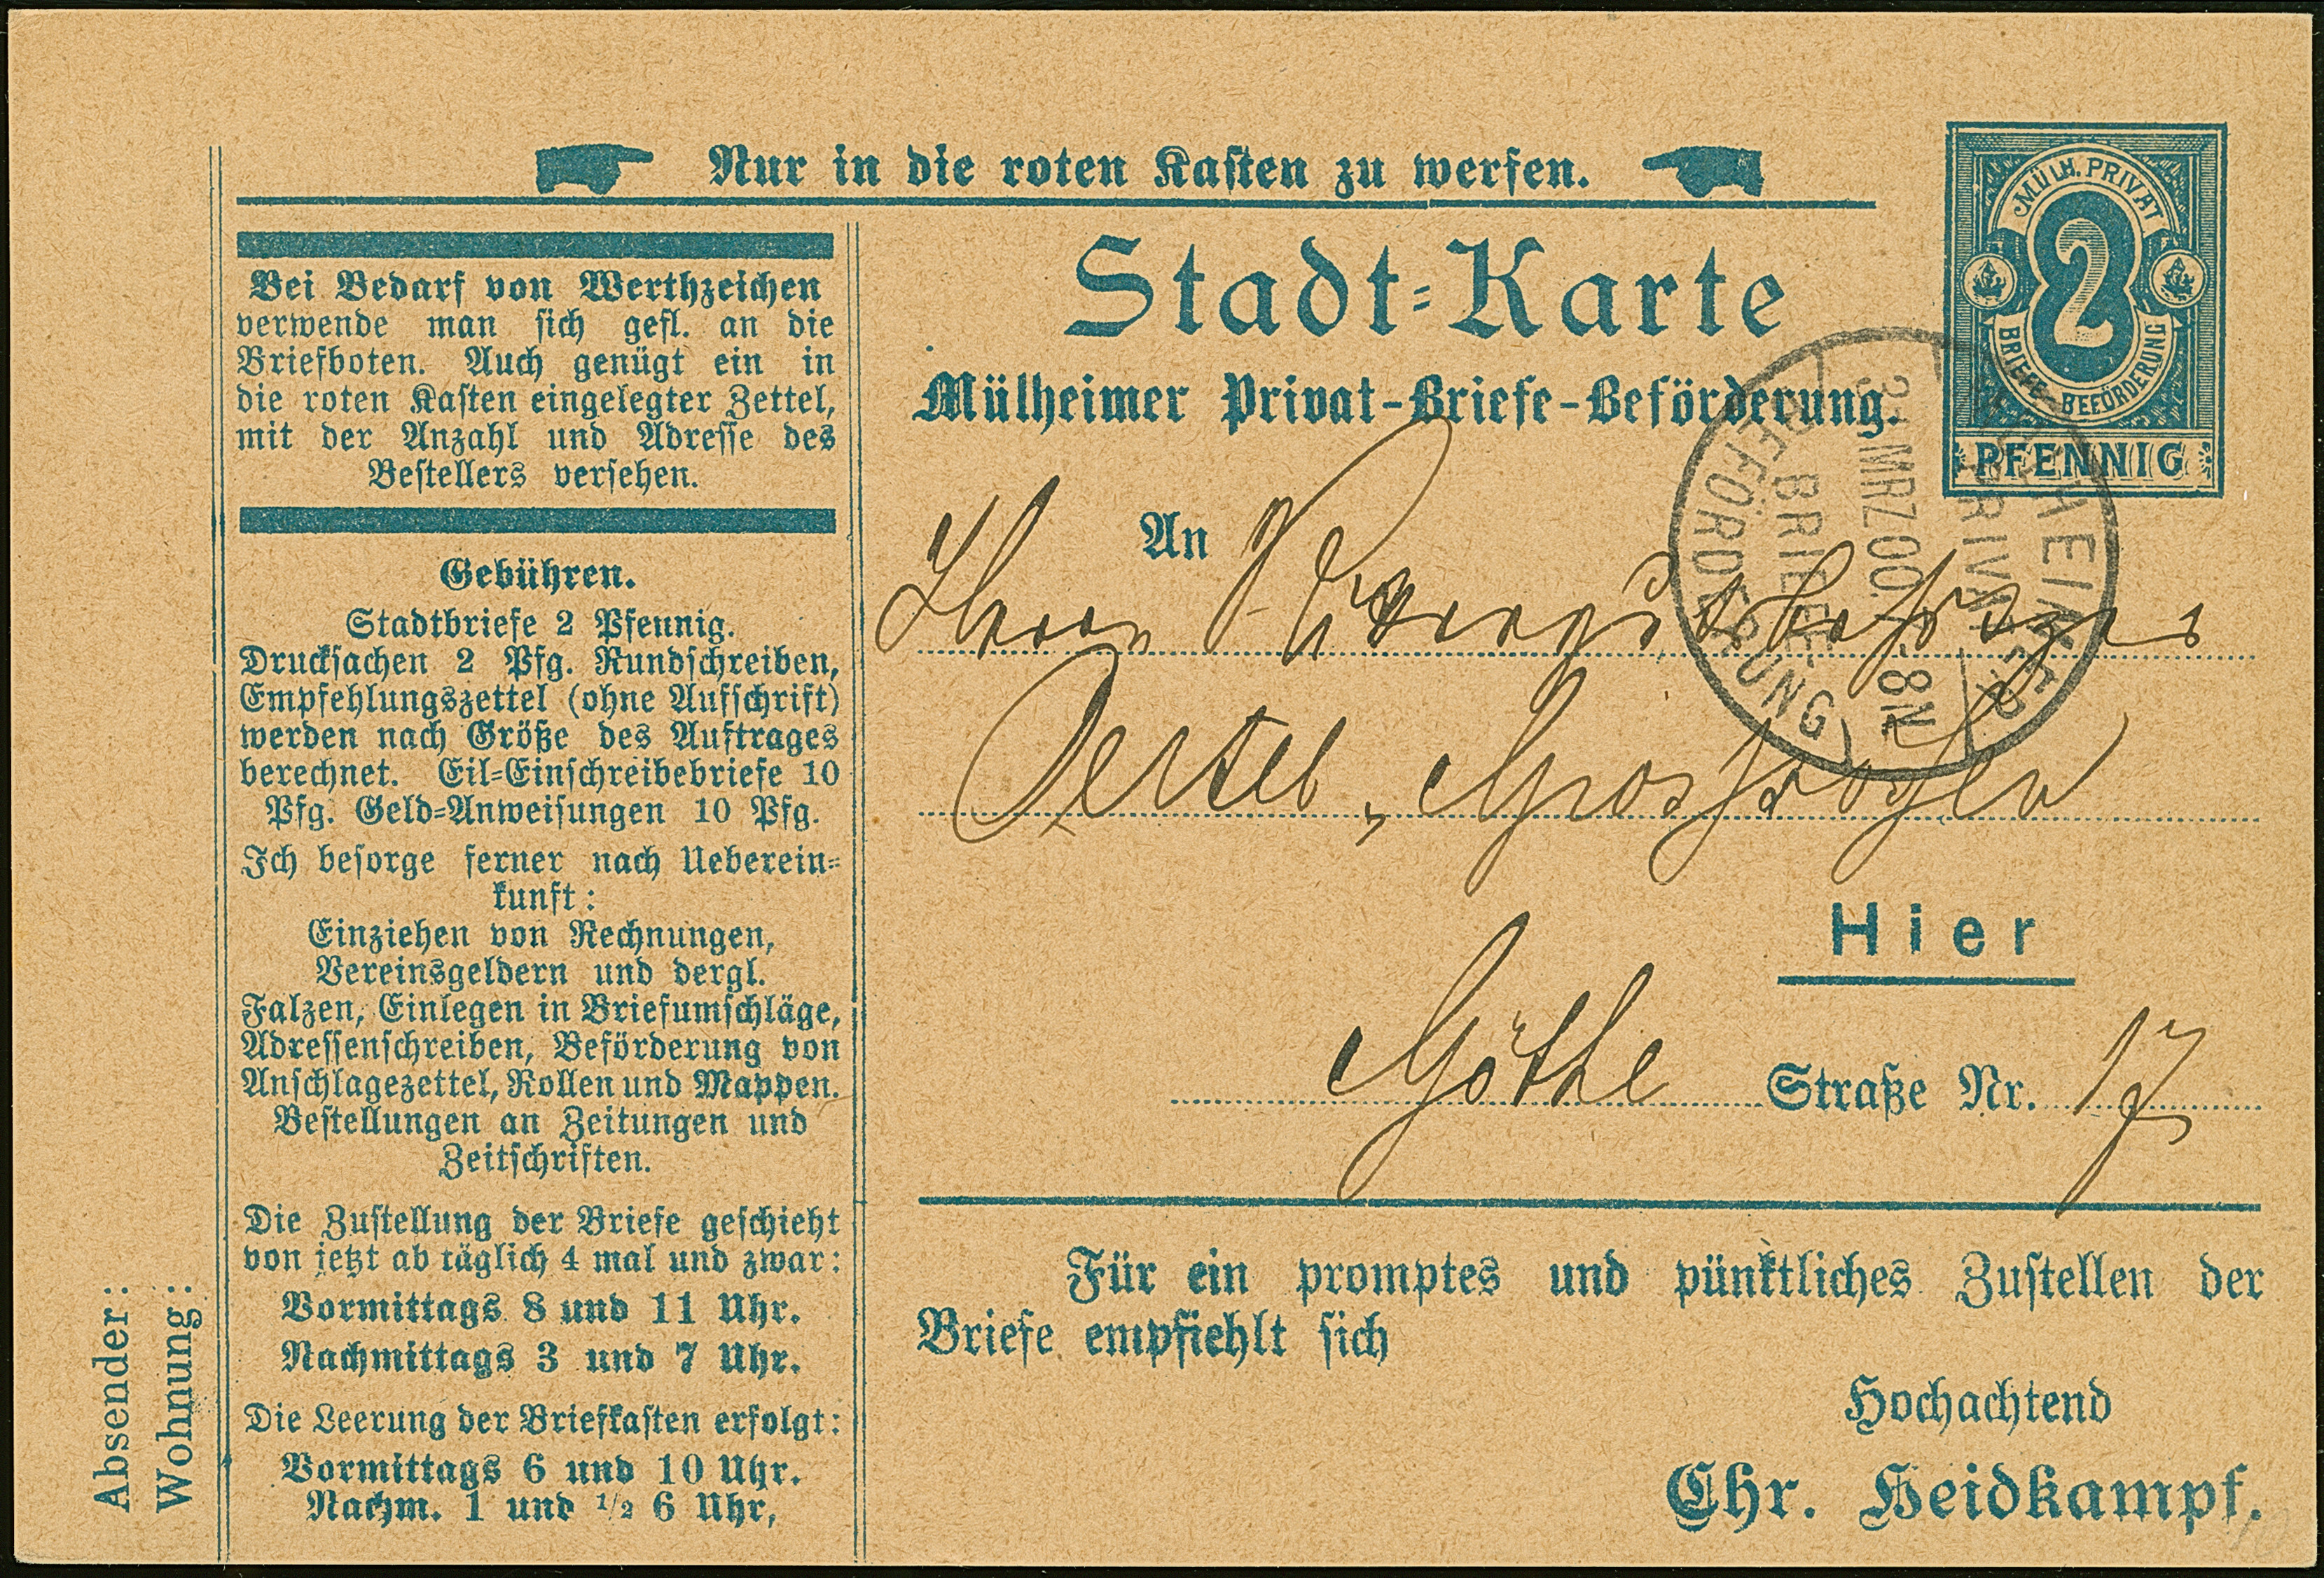 Nur in die roten Kasten zu werfen.
MÜLH. PRIVAT
2
BRIEFE-BEFÖRDERUNG
PFENNIG
Stadt-Karte
Mülheimer Privat-Briefe-Beförderung.
31 MRZ 00. -8N
PRIVAT
BRIEFE-
BEFÖRDERUNG
An
Herrn
Oertel,
Hier
Göthe Straße Nr. 17
Für ein promptes und pünktliches Zustellen der
Briefe empfiehlt sich
Hochachtend
Chr. Heidkampf.
Bei Bedarf von Werthzeichen
verwende man sich gefl. an die
Briefboten. Auch genügt ein in
die roten Kasten eingelegter Zettel,
mit der Anzahl und Adresse des
Bestellers versehen.
Gebühren.
Stadtbriefe 2 Pfennig.
Drucksachen 2 Pfg. Rundschreiben,
Empfehlungszettel (ohne Aufschrift)
werden nach Größe des Auftrages
berechnet. Eil-Einschreibebriefe 10
Pfg. Geld-Anweisungen 10 Pfg.
Ich besorge ferner nach Ueberein-
kunft:
Einziehen von Rechnungen,
Vereinsgeldern und dergl.
Falzen, Einlegen in Briefumschläge,
Adressenschreiben, Beförderung von
Anschlagezettel, Rollen und Mappen.
Bestellungen an Zeitungen und
Zeitschriften.
Die Zustellung der Briefe geschieht
von jetzt ab täglich 4 mal und zwar:
Vormittags 8 und 11 Uhr.
Nachmittags 3 und 7 Uhr.
Die Leerung der Briefkasten erfolgt:
Vormittags 6 und 10 Uhr.
Nachm. 1 und 1/2 6 Uhr,
Absender:
Wohnung: